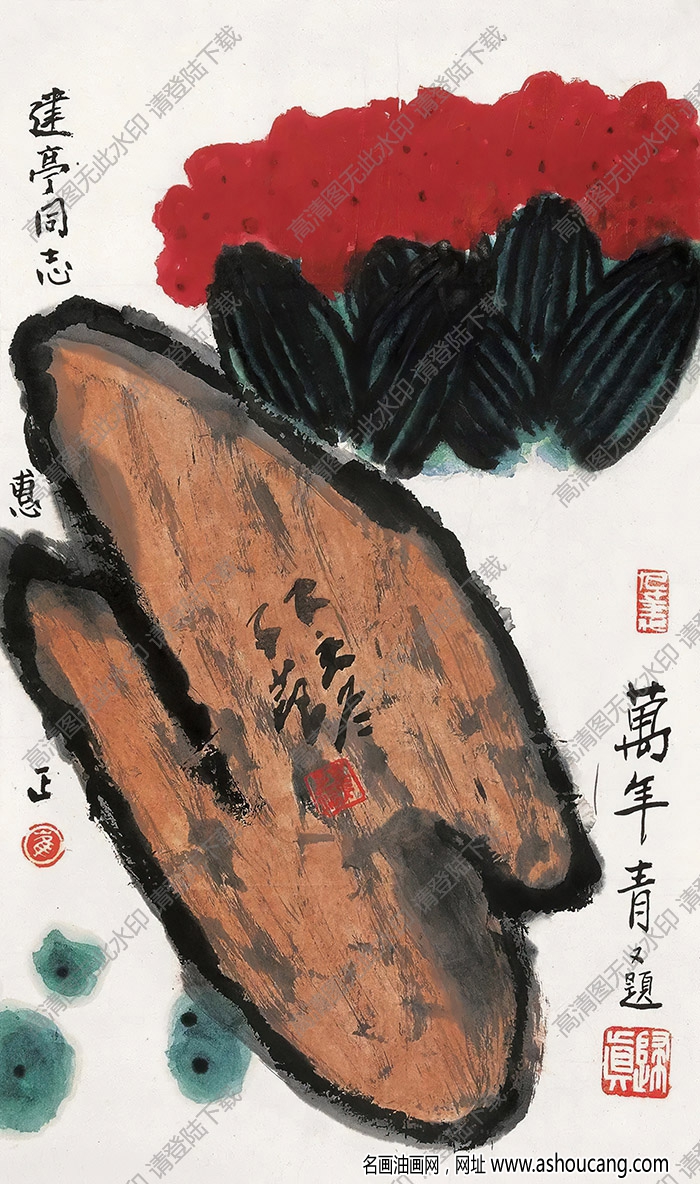 萬年青又題
歸眞
子范
建亭同志
惠
正
高清图无此水印 请登陆下载
名画油画网，网址 www.ashoucang.com